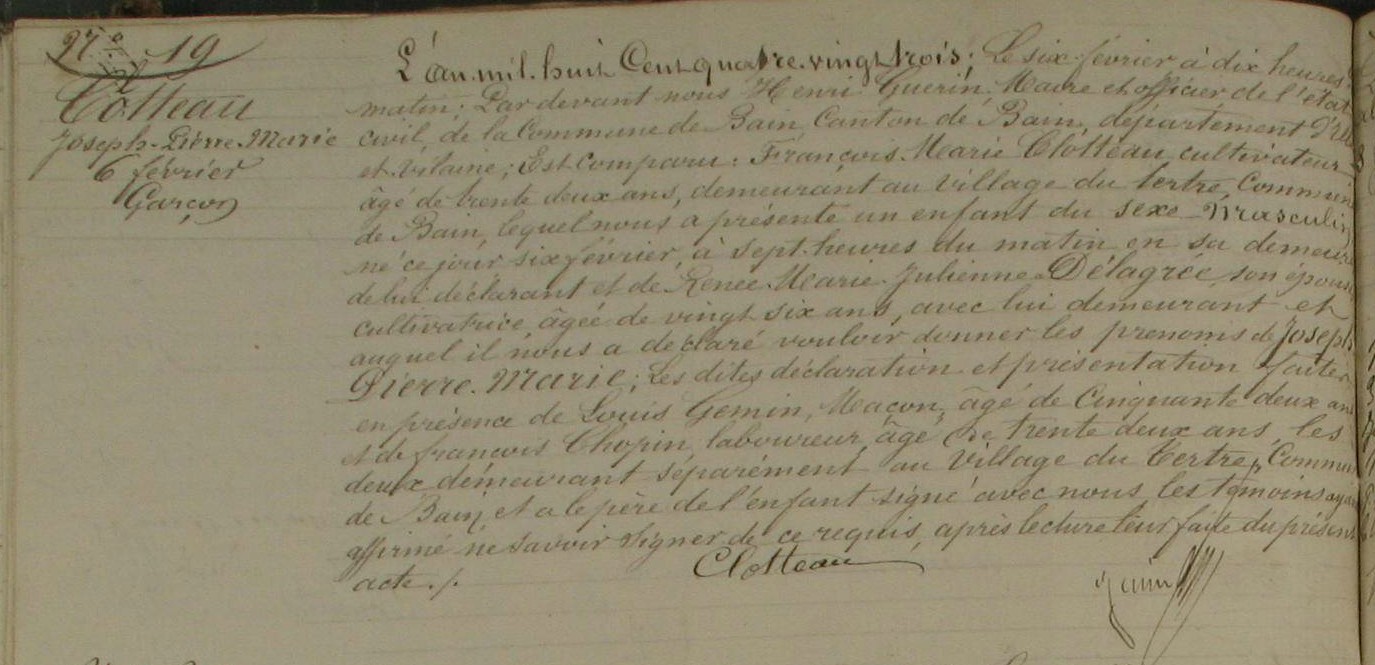 27 19
Clotteau
Joseph-Pierre-Marie
6 février
Garçon
L'an mil huit Cent quatre-vingt trois; Le six février à dix heures
matin; Par devant nous Henri Guerin, Maire et officier de l'état
civil, de la Commune de Bain, Canton de Bain, département d'Ille
et Vilaine; Est Comparu: François Marie Clotteau, cultivateur
âgé de trente deux ans, demeurant au Village du tertre, Commune
de Bain, lequel nous a présenté un enfant du sexe Masculin
né ce jour six février, à sept heures du matin en sa demeure
de lui déclarant et de Renée Marie Julienne Délagrée, son épouse
cultivatrice, âgée de vingt six ans, avec lui demeurant et
auquel il nous a déclaré vouloir donner les prenoms de Joseph
Pierre-Marie; Les dites déclaration et présentation faites
en présence de Louis Gemin, Maçon, âgé de Cinquante deux ans
et de françois Chopin, laboureur, âgé de trente deux ans, les
deux démeurant séparément au Village du Tertre, Commune
de Bain, et a le père de l'enfant signé avec nous, les témoins ayant
affirmé ne savoir signer de ce requis, après lecture leur faite du présent
acte ./.
Clotteau